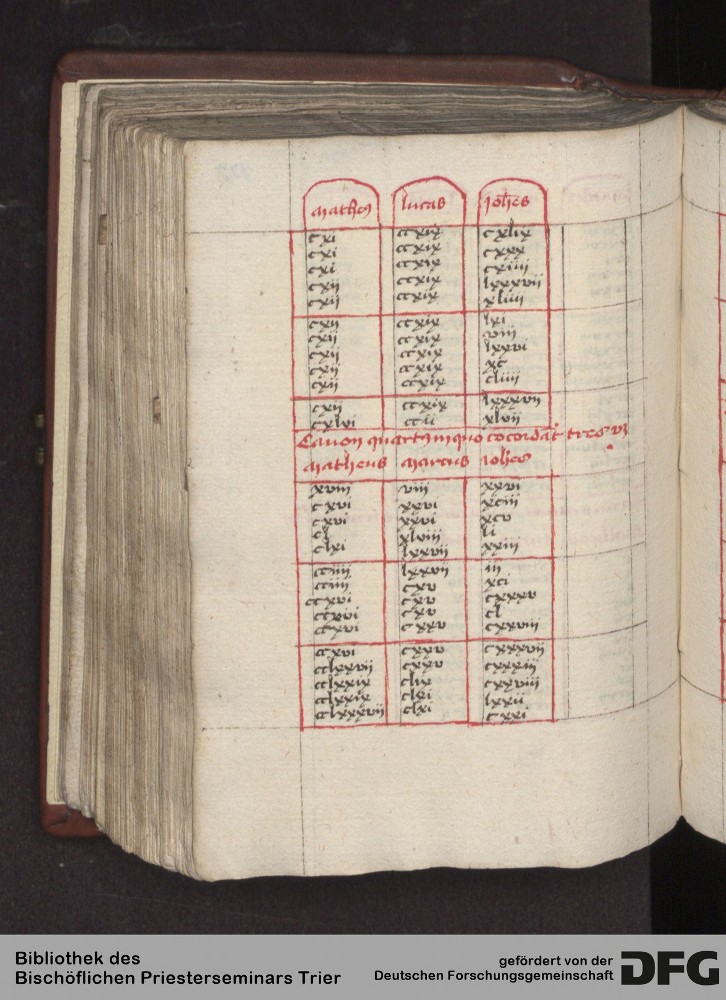 Matheꝰ lucas Joh̅es
cxi ccxix cxlix
cxi ccxix cxxx
cxi ccxix cxiiii
cxii ccxix lxxxvii
cxii ccxix xliiii
cxii ccxix lxi
cxii ccxix viii
cxii ccxix lxxvi
cxii ccxix xc
cxii ccxix cliiii
cxii ccxix lxxxvii
cxlvi ccii xlvii
Canon quartꝰ in quo cōcordāt tres vꝫ
Matheus Marcus Joh̅es
xviii viii xxvi
cxvi xxvi xciii
cxvi xxvi xcv
xlviii li
clxi lxxvii xxiii
cciiii lxxvii iii
cciiii cxv xci
ccxvi cxv cxxxv
ccxvi cxv cl
ccxvi cxxv cxxviii
ccxvi cxxv cxxxvii
cclxxvii cxxv cxxxiii
cclxxix clix cxxviii
cclxxix clxi lxxii
cclxxxvii clxi cxxi
Bibliothek des
Bischöflichen Priesterseminars Trier
gefördert von der
Deutschen Forschungsgemeinschaft DFG